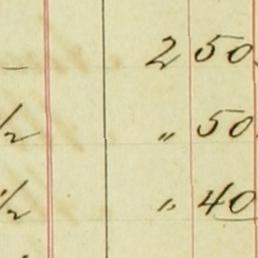 — 2 50
½ " 50
½ " 40